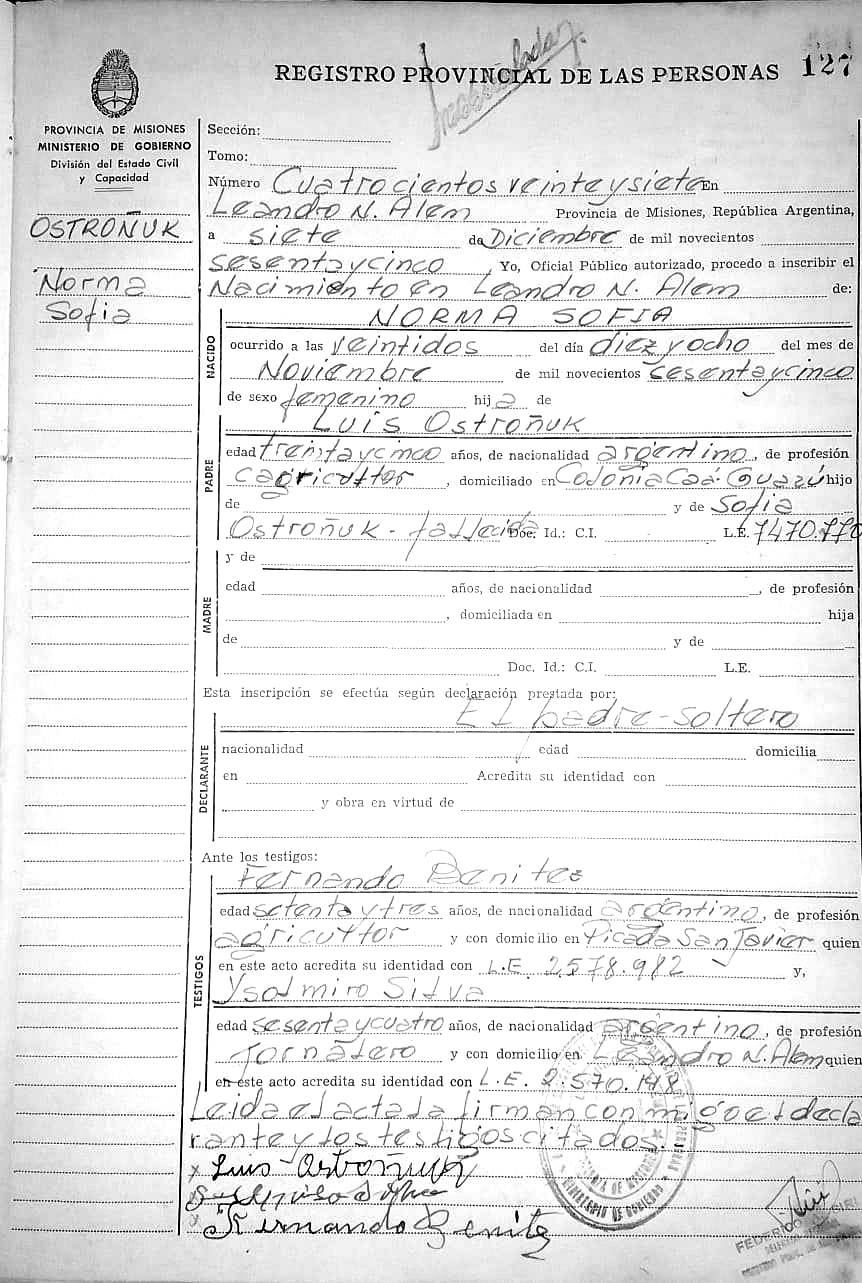 REGISTRO PROVINCIAL DE LAS PERSONAS 127
PROVINCIA DE MISIONES
MINISTERIO DE GOBIERNO
División del Estado Civil
y Capacidad
OSTROÑUK
Norma
Sofia
Sección:
Tomo:
Número Cuatrocientos veinteysiete En
Leandro N. Alem Provincia de Misiones, República Argentina,
a siete de Diciembre de mil novecientos
sesentaycinco, Yo, Oficial Público autorizado, procedo a inscribir el
Nacimiento en Leandro N. Alem de:
NORMA SOFIA
NACIDO
ocurrido a las veintidos del día diez y ocho del mes de
Noviembre de mil novecientos sesentaycinco
de sexo femenino hija de
Luis Ostroñuk
PADRE
edad treintaycinco años, de nacionalidad argentino, de profesión
agricultor, domiciliado en Colonia Caá-Guazú hijo
de y de Sofia
Ostroñuk - fallecida Doc. Id.: C.I. L.E. 7470.770
y de
MADRE
edad años, de nacionalidad, de profesión
, domiciliada en hija
de y de
Doc. Id.: C.I. L.E.
Esta inscripción se efectúa según declaración prestada por:
El padre-soltero
DECLARANTE
nacionalidad edad domicilia
en Acredita su identidad con
y obra en virtud de
Ante los testigos:
Fernando Benitez
TESTIGOS
edad setentaytres años, de nacionalidad argentino, de profesión
agricultor y con domicilio en Picada San Javier quien
en este acto acredita su identidad con L.E. 2.578.982 y,
Ysolmiro Silva
edad sesentaycuatro años, de nacionalidad argentino, de profesión
Jornalero y con domicilio en Leandro N. Alem quien
en este acto acredita su identidad con L.E. 2.570.148
Leida el acta la firman conmigo el decla
rante y los testigos citados.
x Luis Ostroñuk
x Fernando Benitez
MINISTERIO DE GOBIERNO
FEDERICO